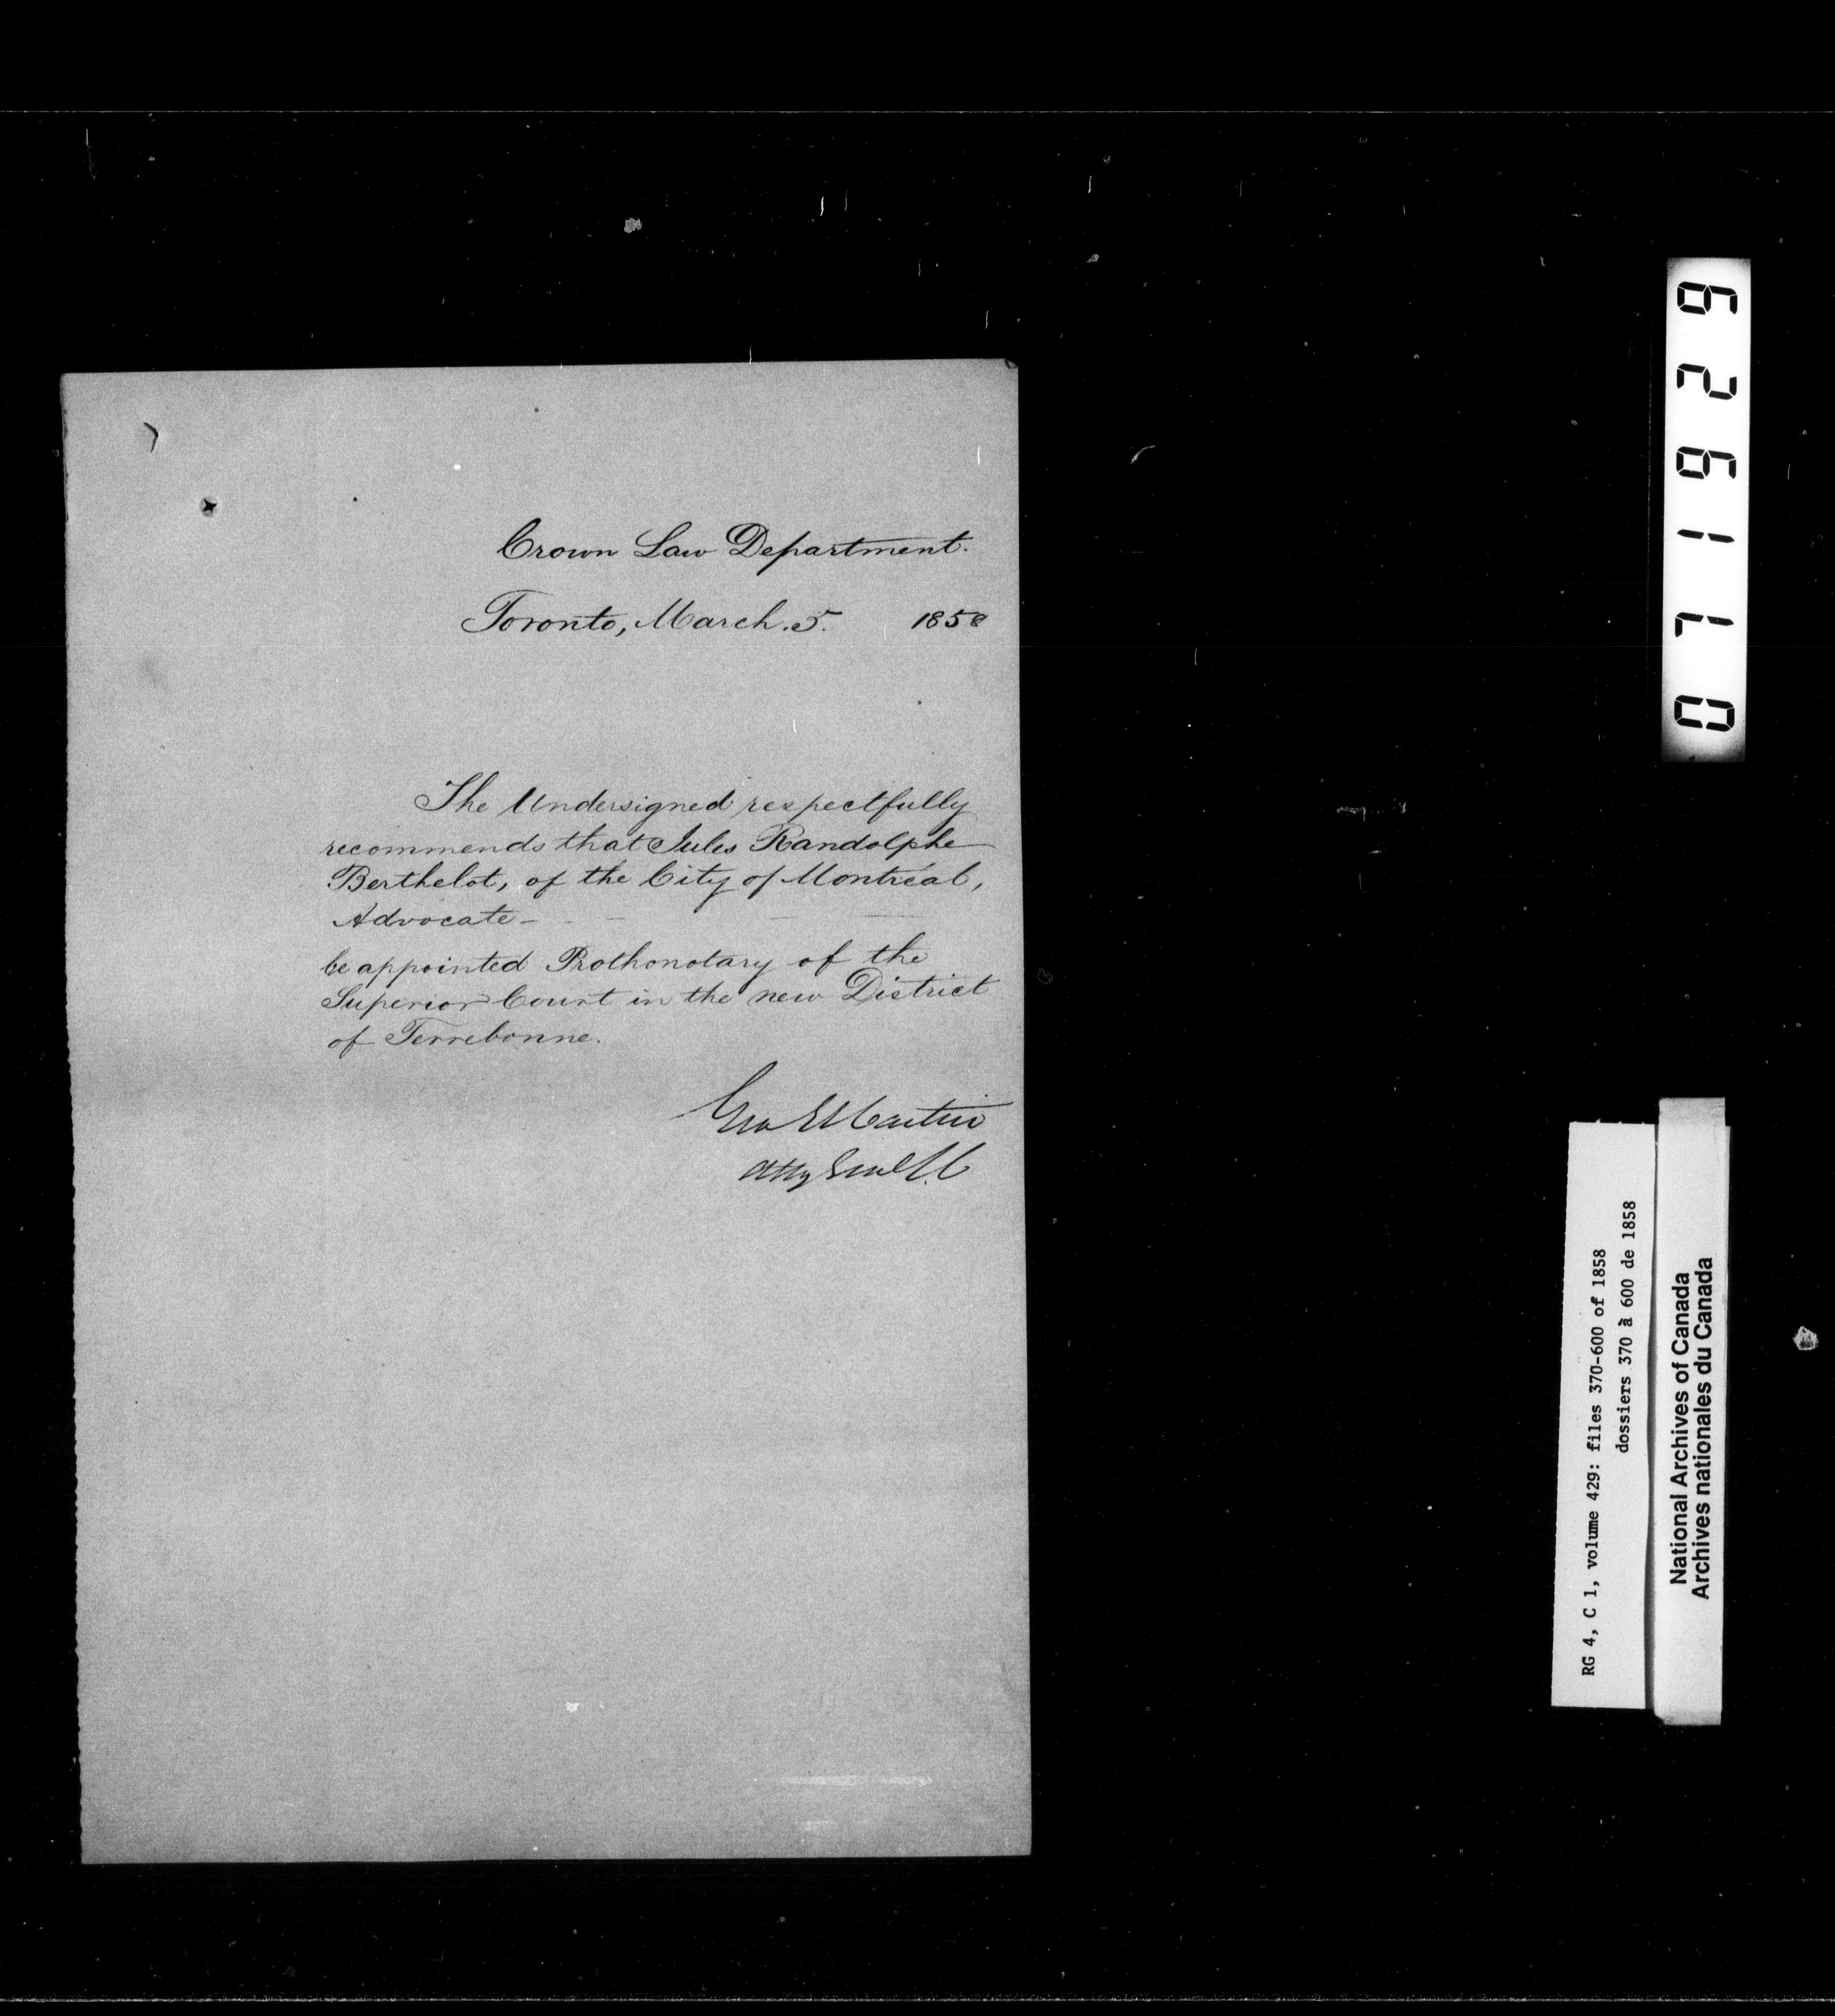 Crown Law Department.
Toronto, March. 5. 1858
The Undersigned respectfully
recommends that Jules Randolphe
Berthelot, of the City of Montréal,
Advocate -
be appointed Prothonotary of the
Superior Court in the new District
of Terrebonne.
Geo E Cartier
Atty Genl L.C
071629
RG 4, C 1, volume 429: files 370-600 of 1858
dossiers 370 à 600 de 1858
National Archives of Canada
Archives nationales du Canada